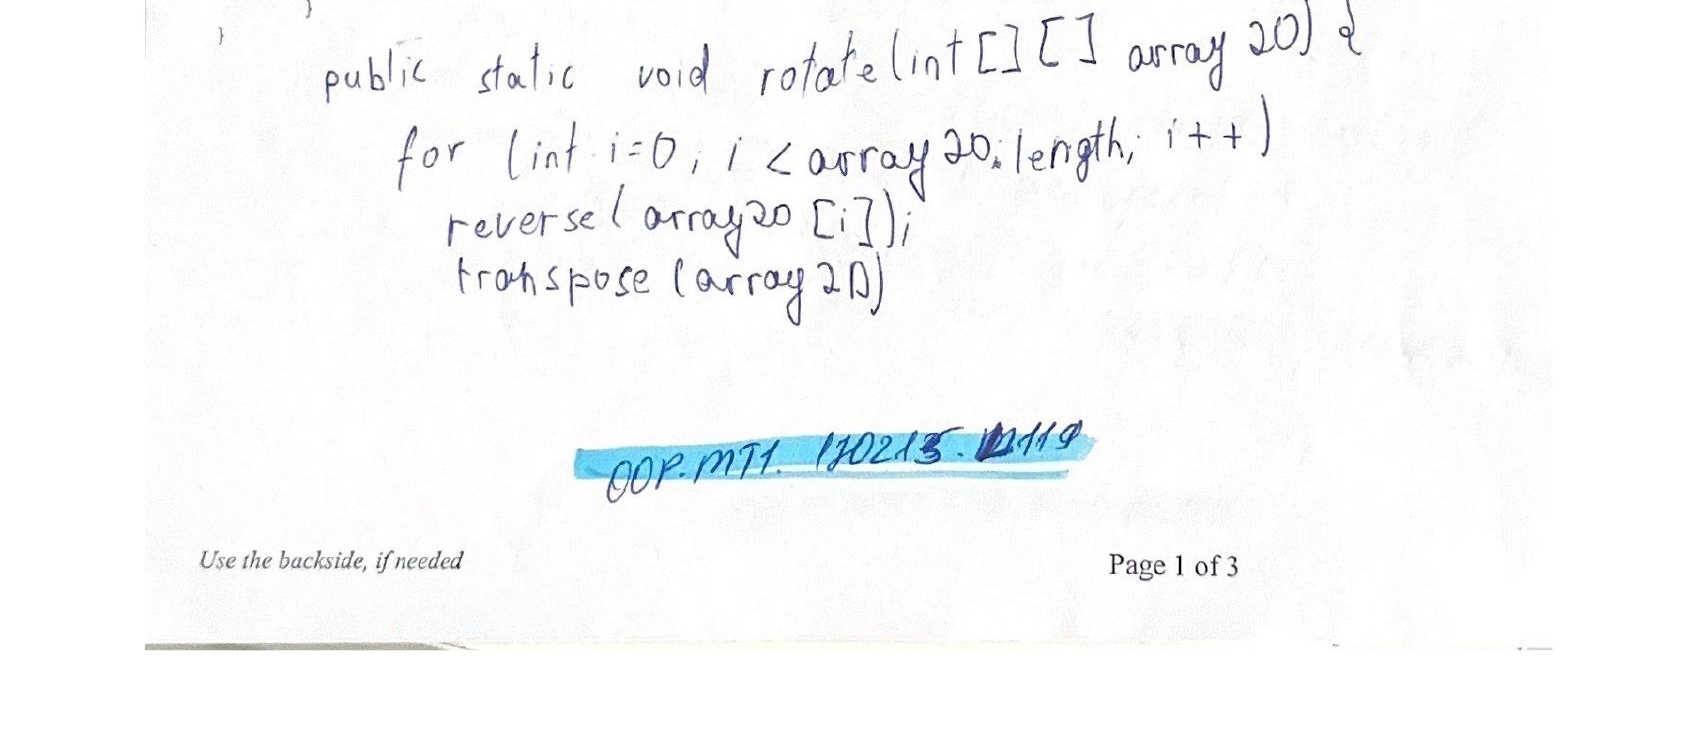 }
}
public static void rotate(int[][] array2D) {
for (int i=0; i < array2D.length; i++)
reverse(array2D[i]);
transpose(array2D)
OOP.MT1. 170215.
Use the backside, if needed
Page 1 of 3